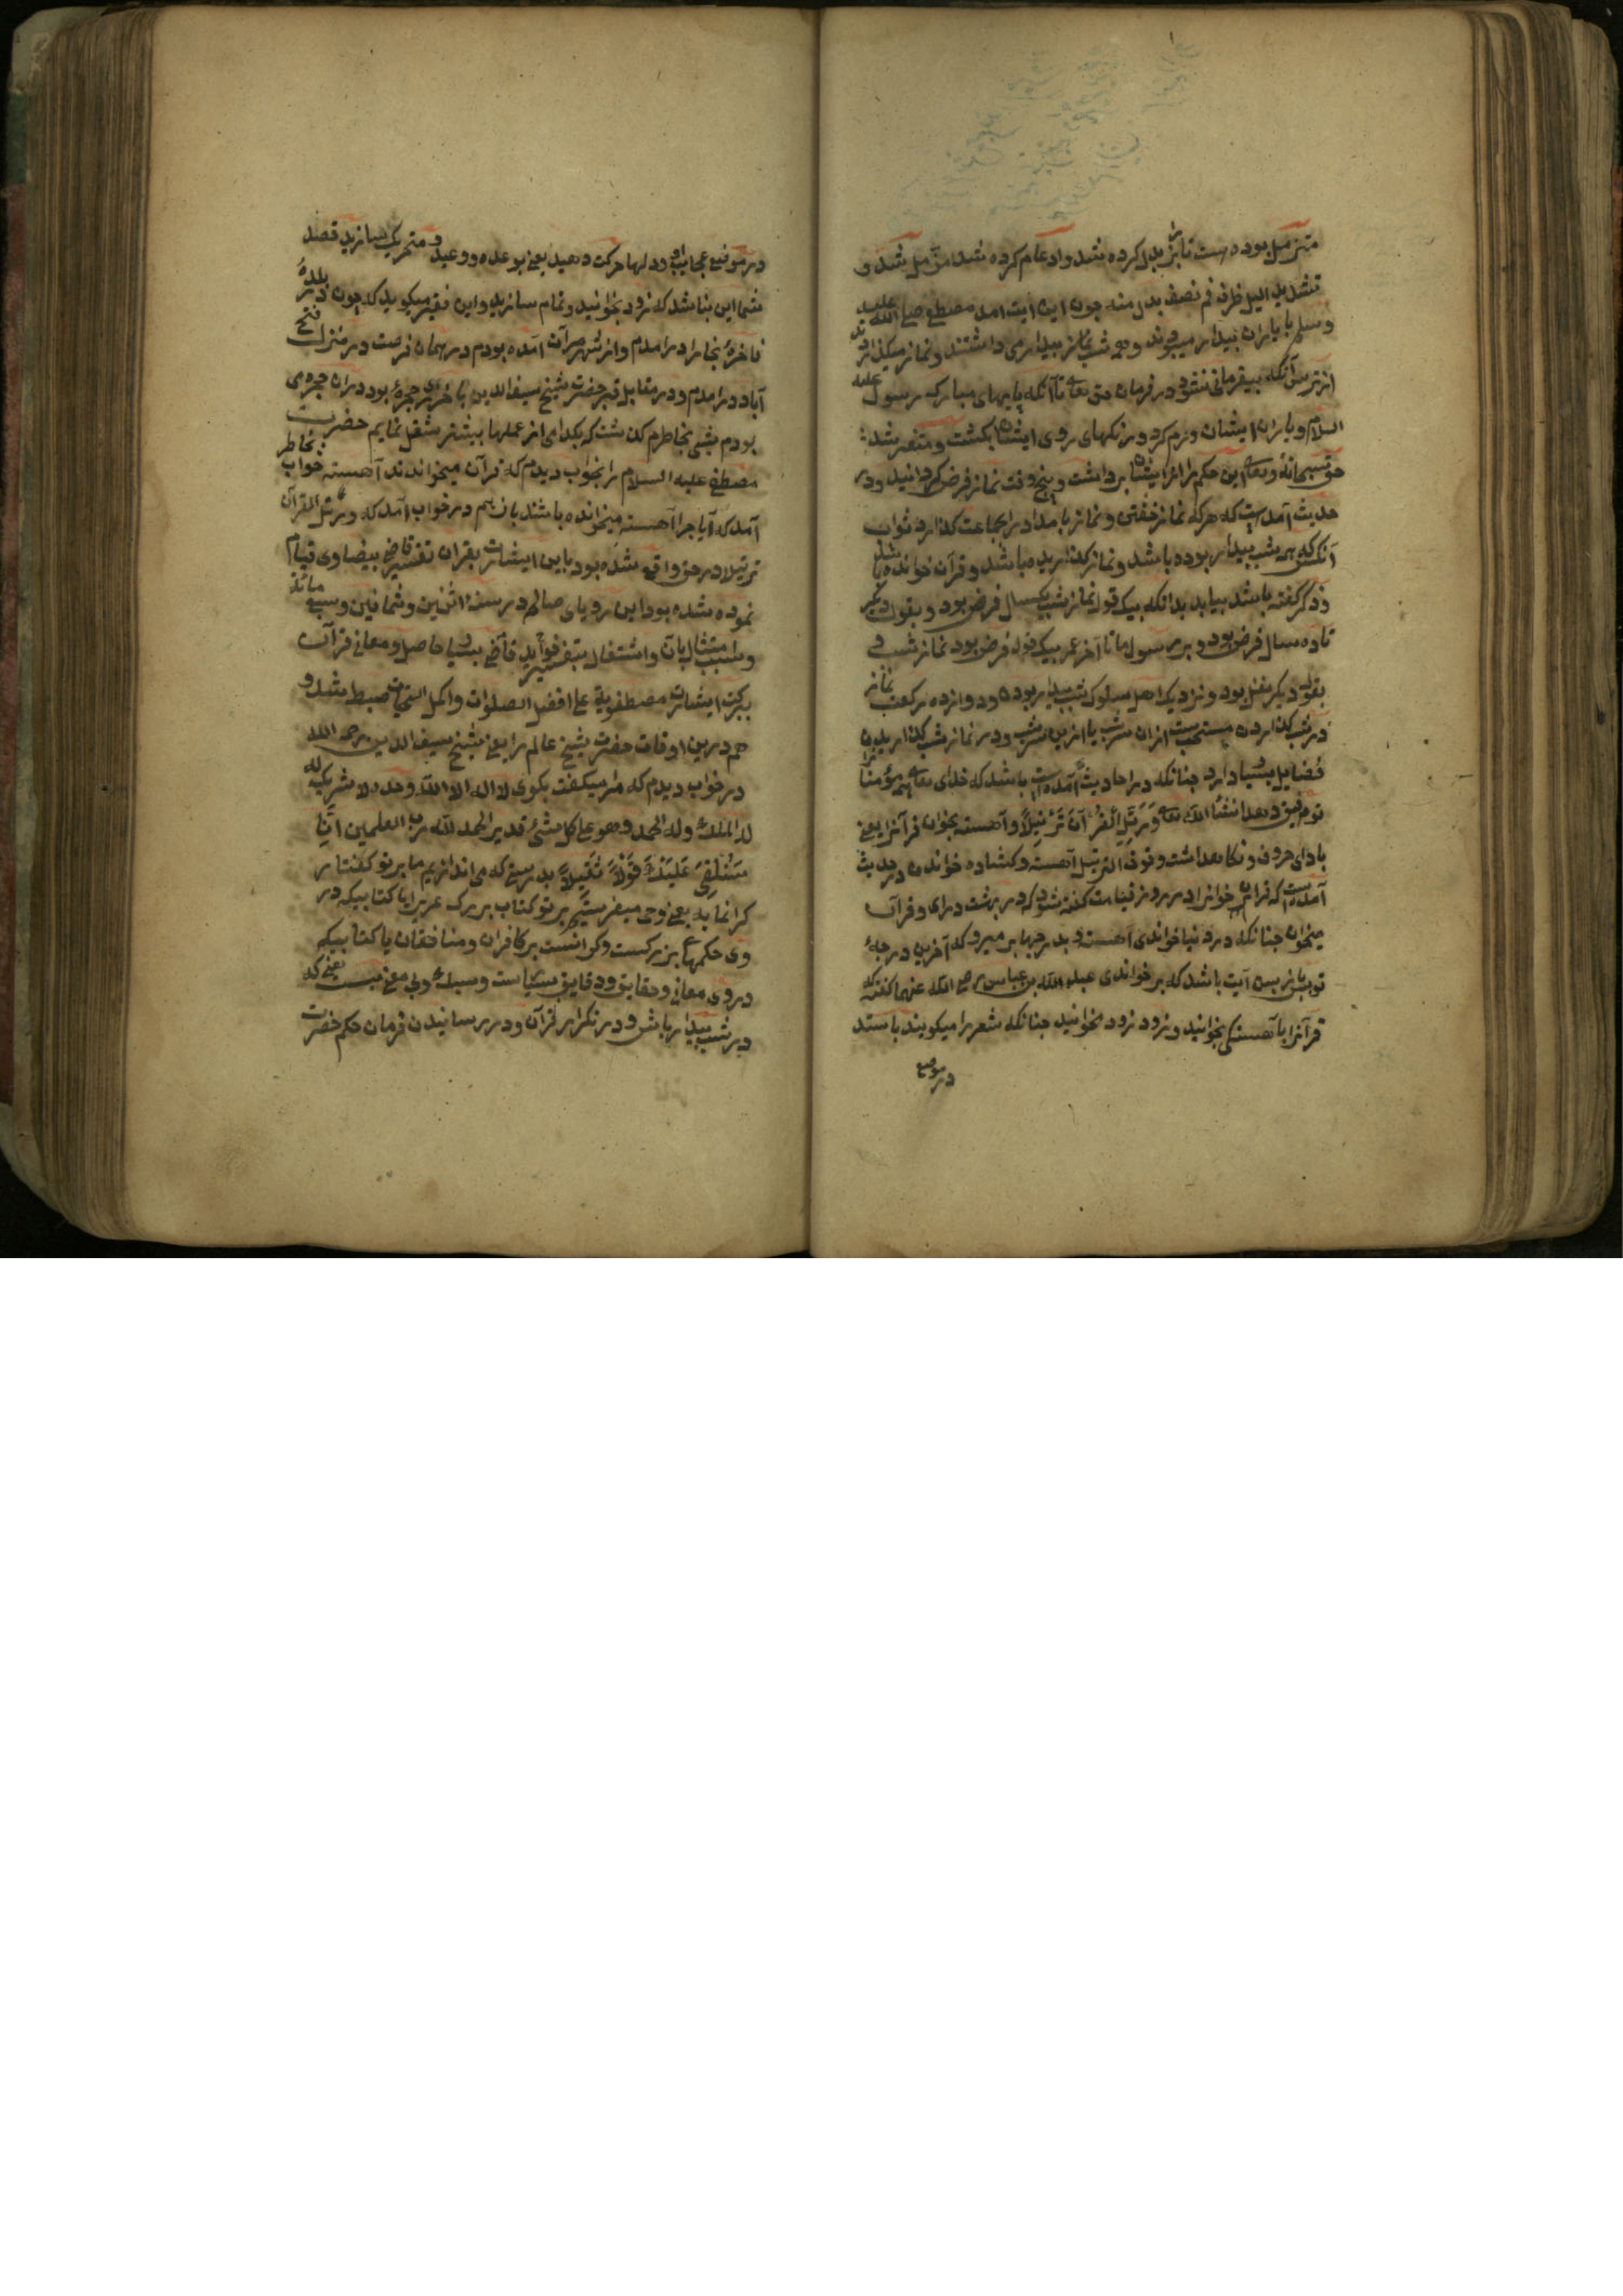 متزمل بوده است تا بزا بدل کرده شد و ادغام کرده شد مزمل شد و
تشدید اللیل ظرف قم نصف بدل منه چون این ایت امد مصطفی صلی الله علیه
وسلم با یاران بیدار میبودند و همه شب نماز بیدار می داشتند و نماز میکذاردند
از ترس آنکه بیفرمانی نشود در فرمان حق تعالی تا آنکه پایهای مبارک رسول علیه
السلام و یاران ایشان ورم کرد و رنکهای روی ایشان بکشت و متغیر شد
حق سبحانه و تعالی این حکم را از ایشان برداشت و پنج وقت نماز فرض کردانید و در
حدیث آمده است که هر که نماز خفتن و نماز بامداد را بجماعت کذارد ثواب
آنکس که همه شب بیدار بوده باشد و نماز کذاریده باشد و قرآن خوانده باشد
ذکر کفته باشد بیابد بدانکه بیک قول نماز شب یکسال فرض بود و بقول دیکر
تا ده سال فرض بود و بر رسول اما تا آخر عمر بیک قول فرض بود نماز شب و
بقول دیکر نفل بود و نزدیک اهل سلوک شب بیدار بودن و دوازده رکعت نماز
در شب کذاردن مستحب است از ان سر شب یا ازین سر شب و در نماز شب کذاریدن
فضایل بسیار دارد چنانکه در احادیث آمده است باشد که خدای تعالی همه مؤمنانرا
توفیق دهد انشا الله تعالی وَرَتِّلِ الْقُرْآنَ تَرْتِیلًا و آهسته بخوان قرآنرا یعنی
بادای حروف و نکاهداشت وقوف الترتیل آهسته و کشاده خواندن در حدیث
آمده است که قرآن خوانرا در روز قیامت کفته شود که در بهشت درای و قرآن
میخوان چنانکه در دنیا خواندی آهسته و بدرجها بر میرو که آخرین درجهٔ
تو پیش ان پسین آیت باشد که بر خواندی عبد الله بن عباس رضی الله عنهما کفته که
قرآنرا بآهستکی بخوانید و زود زود مخوانید چنانکه شعر را میکویند باستد
در موضع
در موضع عجایب او و دلها حرکت دهید یعنی بوعده و وعید و متحرک سازید قصد
شما این نباشد که زود بخوانید و تمام سازید و این فقیر میکوید که چون در بلدهٔ
فاخرهٔ بخارا درامدم و از شهر آن آمده بودم در همان فرصت در منزل فتح
آباد درامدم و در مقابل قبر حضرت شیخ سیف الدین باخرزی حجرهٔ بود دران حجره می
بودم شبی بخاطرم کذشت که بکدامی از عملها بیشتر شغل نمایم حضرت
مصطفی علیه السلام را بخواب دیدم که قرآن میخواندند آهسته در خواب بخاطر
آمد که آیا چرا آهسته میخوانده باشند باز هم در خواب آمد که و رتل القرآن
ترتیلا در حق واقع شده بود باین ایشارت بقران تفسیر قاضی بیضاوی قیام
نموده شده بود این رویای صالحه در سنه اثنین و ثمانین و سبع مائة
و بسبب امتثال بآن و اشتغال بتفسیر فواید قاضی بسیار حاصل و معانی قرآن
ببرکت ایشارت مصطفویه علی افضل الصلوات و اکمل التحیات ضبط شد و
هم درین اوقات حضرت شیخ عالم را یعنی شیخ سیف الدین رحمه الله
در خواب دیدم که مرا میکفت بکوی لا اله الا الله وحده لا شریک له
له الملک وله الحمد وهو علی کل شئ قدیر الحمد لله رب العلمین اِنَّا
سَنُلْقِی عَلَیْكَ قَوْلًا ثَقِیلًا بدرستی که می اندازیم ما بر تو کفتار
کرانمایه یعنی وحی میفرستیم بر تو کتاب بزرک عزیز یا کتابیکه در
وی حکمهای بزرکست و کرانست بر کافران و منافقان یا کتابیکه
در وی معانی و حقایق و دقایق بسیارست و سبک و بی معنی نیست یعنی که
در شب بیدار باش و در تکرار قرآن و در رسانیدن فرمان حکم حضرت